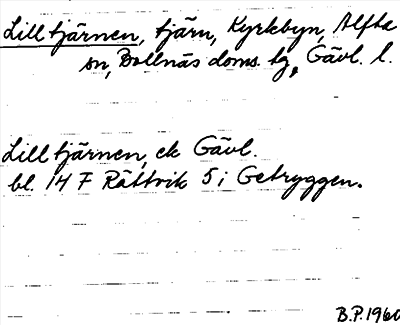 Lilltjärnen, tjärn, Kyrkbyn, Alfta
sn, Bollnäs doms. tg, Gävl. l.
Lilltjärnen, ek Gävl.
bl. 14 F Rättvik 5 i Getryggen.
B.P. 1960